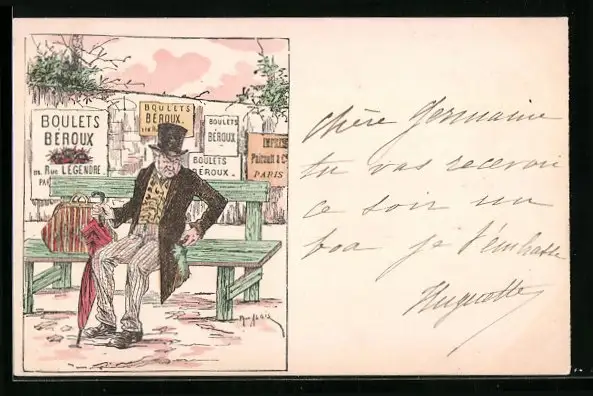 BOULETS
BÉROUX
RUE LEGENDRE
BOULETS
BÉROUX.
BOULETS
BÉROUX
BOULETS
BÉROUX.
PARIS
chère Germaine
tu vas recevoir
ce soir un
boa je t'embrasse
Huguette